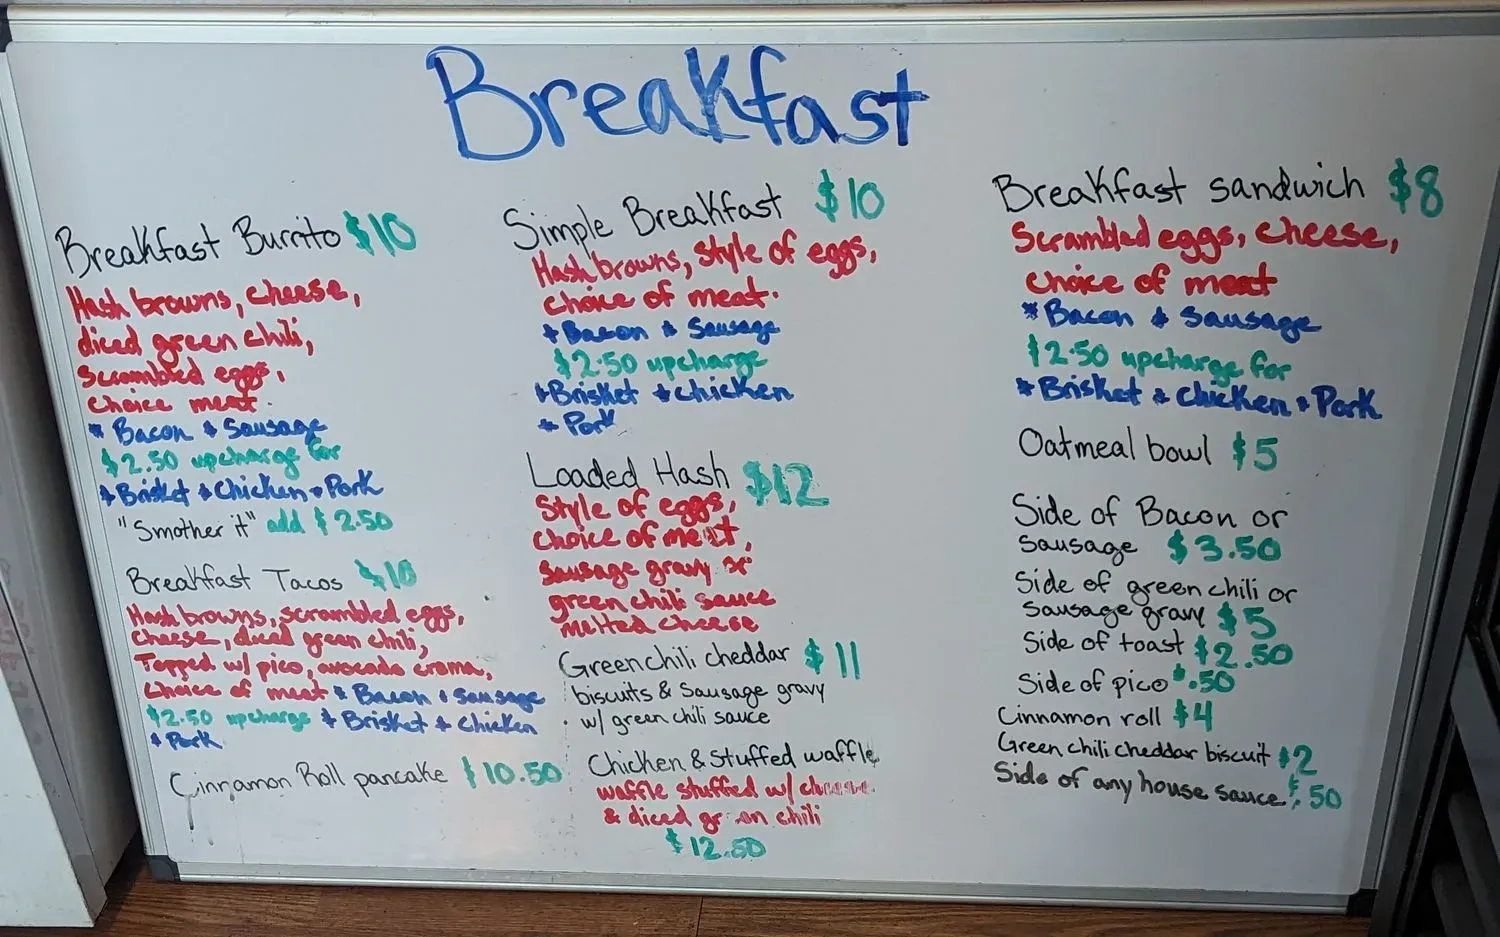 Breakfast
Breakfast Burrito $10
Hash browns, cheese,
diced green chili,
Scrambled eggs,
choice meat.
* Bacon * Sausage
$2.50 upcharge for
* Brisket * Chicken * Pork
"Smother it" add $2.50
Breakfast Tacos $10
Hash browns, scrambled eggs,
cheese, diced green chili,
Topped w/ pico, avocado crema,
choice of meat * Bacon * Sausage
$2.50 upcharge * Brisket * Chicken
* Pork
Cinnamon Roll pancake $10.50
Simple Breakfast $10
Hash browns, style of eggs,
choice of meat.
* Bacon * Sausage
$2.50 upcharge
* Brisket * chicken
* Pork
Loaded Hash $12
Style of eggs,
choice of meat,
sausage gravy or
green chili sauce
melted cheese
Green chili cheddar $11
biscuits & Sausage gravy
w/ green chili sauce
Chicken & Stuffed waffle
waffle stuffed w/ cheese
& diced green chili
$12.50
Breakfast sandwich $8
Scrambled eggs, cheese,
choice of meat
* Bacon * Sausage
$2.50 upcharge for
* Brisket * chicken * Pork
Oatmeal bowl $5
Side of Bacon or
sausage $3.50
Side of green chili or
Sausage gravy $5
Side of toast $2.50
Side of pico $.50
Cinnamon roll $4
Green chili cheddar biscuit $2
Side of any house sauce $.50